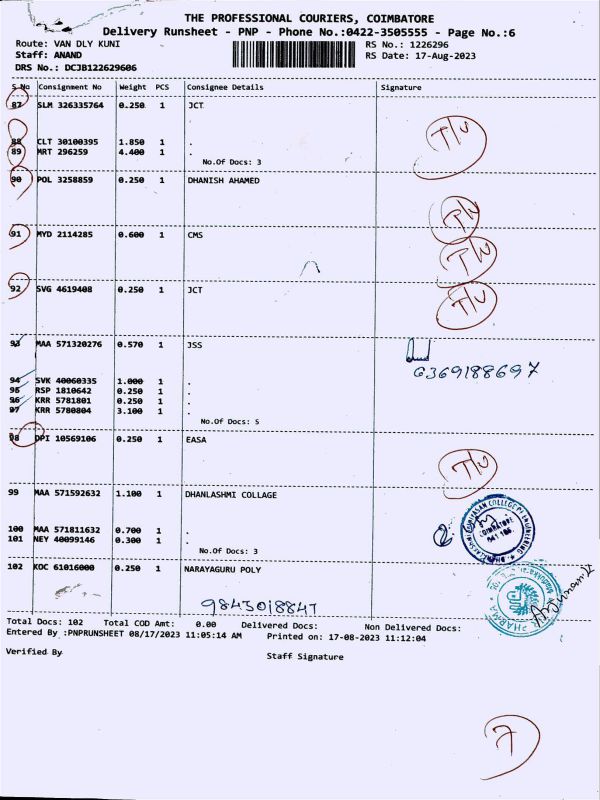 THE PROFESSIONAL COURIERS, COIMBATORE
Delivery Runsheet - PNP - Phone No.:0422-3505555 - Page No.:6
Route: VAN DLY KUNI RS No.: 1226296
Staff: ANAND RS Date: 17-Aug-2023
DRS No.: DCJB122629606
S No Consignment No Weight PCS Consignee Details Signature
87 SLM 326335764 0.250 1 JCT
88 CLT 30100395 1.850 1 .
89 MRT 296259 4.400 1 .
No.Of Docs: 3
T/U
90 POL 3258859 0.250 1 DHANISH AHAMED
T/U
91 MYD 2114285 0.600 1 CMS
T/U
92 SVG 4619408 0.250 1 JCT
T/U
93 MAA 571320276 0.570 1 JSS
6369188697
94 SVK 40060335 1.000 1 .
95 RSP 1810642 0.250 1 .
96 KRR 5781801 0.250 1 .
97 KRR 5780804 3.100 1 .
No.Of Docs: 5
98 DPI 10569106 0.250 1 EASA
T/U
99 MAA 571592632 1.100 1 DHANLASHMI COLLAGE
COLLEGE OF ENGINEERING
COIMBATORE
641 105
100 MAA 571811632 0.700 1 .
101 NEY 40099146 0.300 1 .
No.Of Docs: 3
102 KOC 61016000 0.250 1 NARAYAGURU POLY
9843018847
PHARMA
Total Docs: 102 Total COD Amt: 0.00 Delivered Docs: Non Delivered Docs:
Entered By :PNPRUNSHEET 08/17/2023 11:05:14 AM Printed on: 17-08-2023 11:12:04
Verified By Staff Signature
7